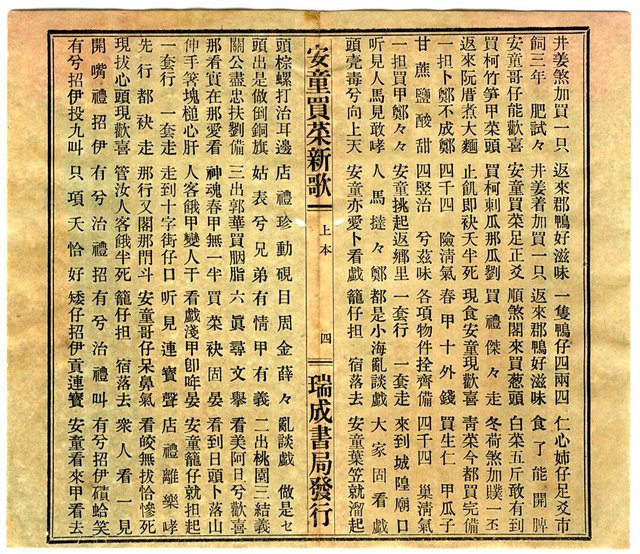 井姜煞加買一只 返來郡鴨好滋味 一隻鴨仔四兩四 仁心姉仔足爻市
飼三年 肥試々 井姜着加買一只 返來郡鴨好滋味 食了能開脾
安童哥仔能歡喜 安童買菜足正爻 順煞閣來買葱頭 白菜五斤敢有到
買柯竹笋甲菜頭 買柯刺瓜那瓜劉 買禮傑々走 冬荷煞加贌一丕
返來阮厝煮大麵 止飢即袂天半死 現食安童現歡喜 靑菜今都買完備
一担卜鄭不成鄭 四千四 險淸氣 春甲十外錢 買生仁 甲瓜子
甘蔗鹽酸甜 四堅治 兮滋味 各項物件拴齊備 四千四 巢淸氣
一担買甲鄭々 安童挑起返鄉里 一套行 一套走 來到城隍廟口
听見人馬見敢哮 人馬撻々鄭 都是小海亂談戲 大家固看戲
頭壳毒兮向上天 安童亦愛卜看戲 籠仔担 宿落去 安童葉笠就溜起
安童買菜新歌 上本 四 瑞成書局發行
頭棕螺打治耳邊 店禮珍動硯 日周金薛々 亂談戲 做是七
頭出是做倒銅旗 姑表兮兄弟 有情甲有義 二出桃園三結義
關公盡忠扶劉備 三出郭華買胭脂 六眞尋文擧 看美阿日兮歡喜
那看實在那愛看 神魂春甲無一半 買菜袂固晏 看到日頭卜落山
伸手箸塊槌心肝 人客餓甲變人干 看戲淺甲卽晬晏 安童籠仔就担起
一套行 一套走 走到十字街仔口 听見連寶聲 店禮離樂哮
先行都袂走 那行又閣那門斗 安童哥仔呆鼻氣 看皎無拔恰慘死
現拔心頭現歡喜 管汝人客餓半死 籠仔担 宿落去 衆人看一見
開嘴禮招伊 有兮治禮招 有兮治禮叫 有兮招伊磧蛤笑
有兮招伊投九叫 只項夭恰好 矮仔招伊貢連寶 安童看來甲看去